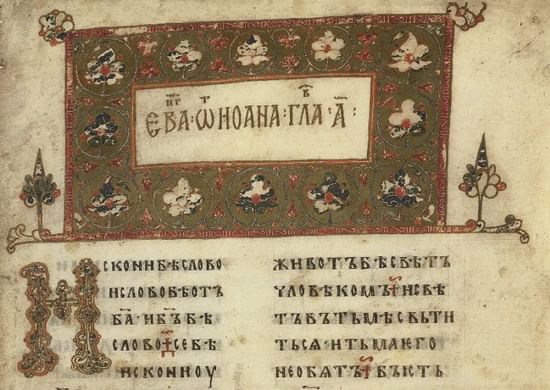 ЕВА҃·Ѿ ИОАНА·ГЛА҃·А҃:
ИСКОНИБѢСЛОВО
ИСЛОВОБѢОТЪ
Б҃АИБ҃ЪБѢ
СЛОВО СЕБѢ
ИСКОНИОУ
ЖИВОТЪБѢСВѢТЪ
ЧЛОВѢКОМЪ ИСВѢ
ТЪВЪТЬМѢСВЬТИ
ТЬСЯИТЬМАЕГО
НЕОБЯТЪ БЫСТЬ